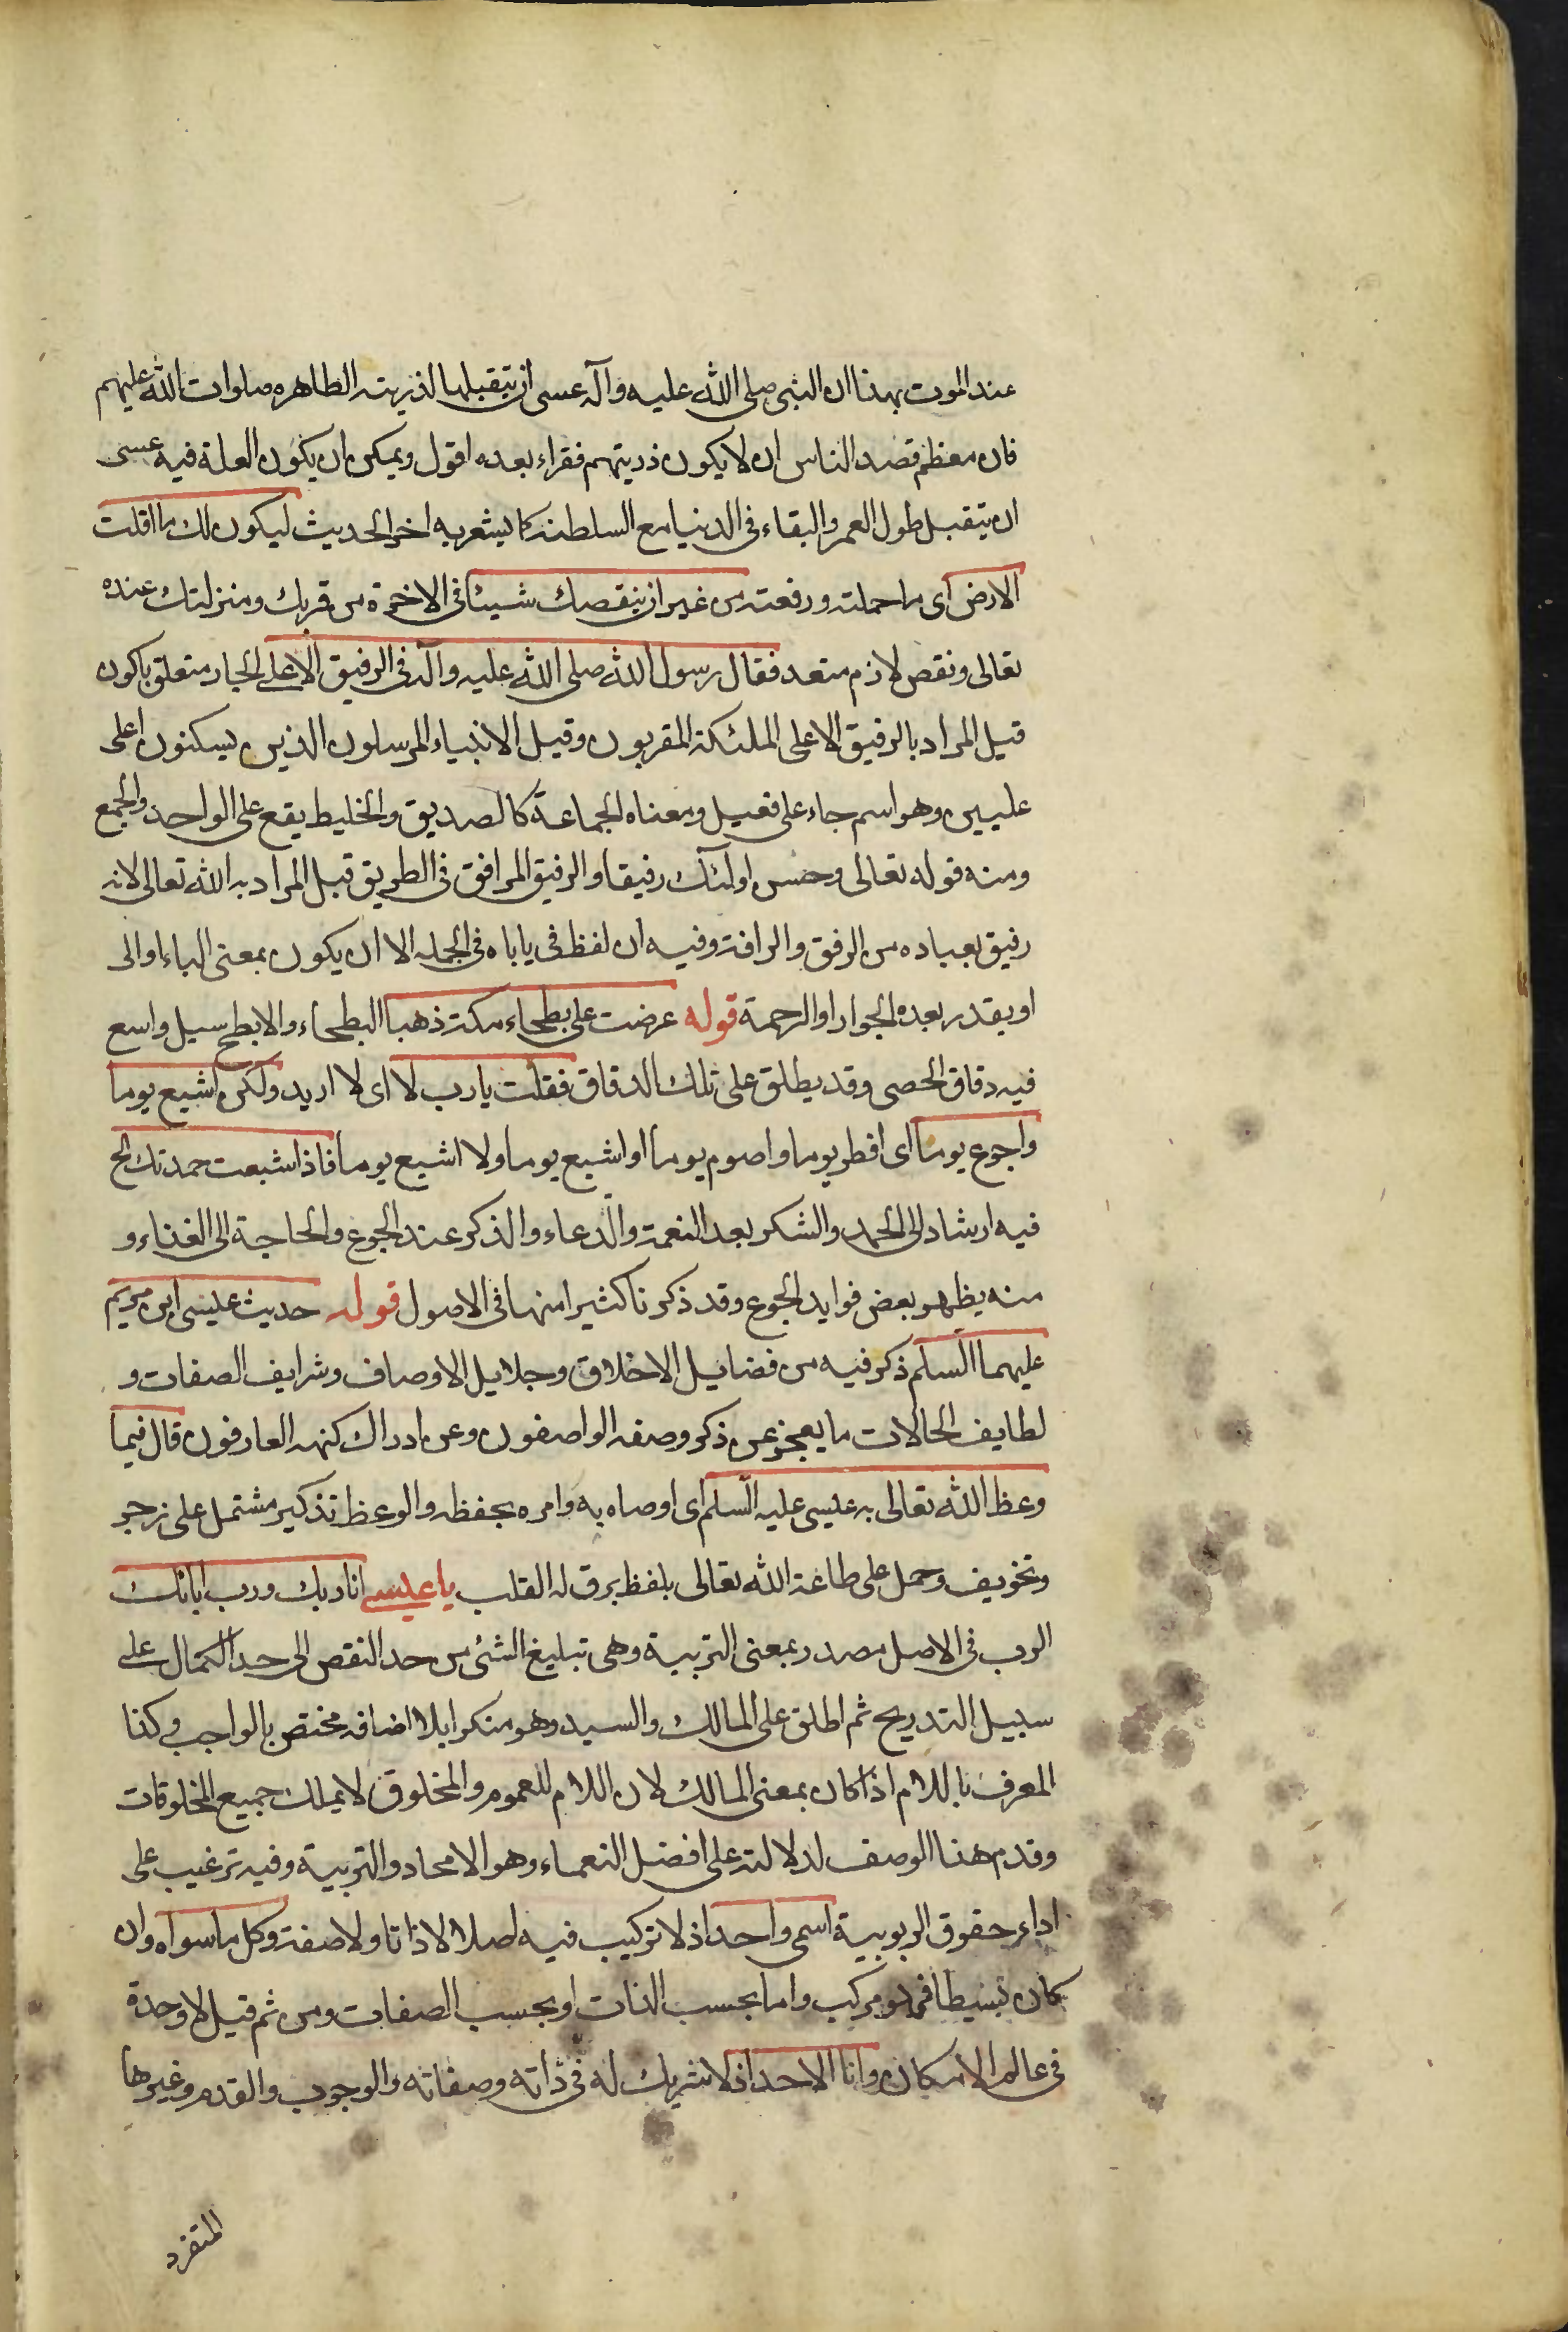 عند الموت بهذا ان النبى صلى الله عليه وآله عسى ان يتقبلها لذريته الطاهره صلوات الله عليهم
فان معظم قصد الناس ان لا يكون ذريتهم فقراء بعده اقول ويمكن ان يكون العلة فيه عسى
ان يتقبل طول العمر والبقاء فى الدنيا مع السلطنه كما يشعر به اخر الحديث ليكون لك ما اقلت
الارض اى ما حملته ورفعته من غير ان ينقصك شيئا فى الاخرة من قربك ومنزلتك عنده
تعالى ونقص لازم متعد فقال رسول الله صلى الله عليه وآله فى الرفيق الاعلى الجار متعلق باكون
قيل المراد بالرفيق الاعلى الملئكة المقربون وقيل الانبياء المرسلون الذين يسكنون اعلى
عليين وهو اسم جاء على فعيل ومعناه الجماعة كالصديق والخليط يقع على الواحد والجمع
ومنه قوله تعالى وحسن اولئك رفيقا والرفيق المرافق فى الطريق قيل المراد به الله تعالى لانه
رفيق بعباده من الرفق والرافة وفيه ان لفظ فى ياباه فى الجمله الا ان يكون بمعنى الباء او الى
او يقدر بعده الجوار او الرحمة قوله عرضت على بطحاء مكة ذهبا البطحاء والابطح سيل واسع
فيه دقاق الحصى وقد يطلق على تلك الدقاق فقلت يا رب لا اى لا اريد ولكن اشبع يوما
واجوع يوما اى افطر يوما واصوم يوما او اشبع يوما ولا اشبع يوما فاذا شبعت حمدتك الخ
فيه ارشاد الى الحمد والشكر بعد النعمة والدعاء والذكر عند الجوع والحاجة الى الغذاء و
منه يظهر بعض فوايد الجوع وقد ذكرنا كثيرا منها فى الاصول قوله حديث عليسى ابن مريم
عليهما السلم ذكر فيه من فضايل الاخلاق وجلايل الاوصاف وشرايف الصفات و
لطايف الحالات ما يعجز عن ذكر وصفه الواصفون وعن ادراك كنهه العارفون قال فيما
وعظ الله تعالى به عليسى عليه السلم اى اوصاه به وامره بحفظه والوعظ تذكير مشتمل على زجر
وتخويف وحمل على طاعة الله تعالى بلفظ يرق له القلب يا عليسى انا ربك ورب ابائك
الرب فى الاصل مصدر بمعنى التربية وهى تبليغ الشئ من حد النقص الى حد الكمال على
سبيل التدريج ثم اطلق على المالك والسيد وهو منكرا بلا اضافه مختص بالواجب وكذا
المعرف باللام اذا كان بمعنى المالك لان اللام للعموم والمخلوق لا يملك جميع المخلوقات
وقدم هذا الوصف لدلالته على افضل النعماء وهو الايجاد والتربية وفيه ترغيب على
اداء حقوق الربوبية اسمى واحد اذ لا تركيب فيه اصلا لا ذاتا ولا صفة وكل ما سواه وان
كان بسيطا فهو مركب واما بحسب الذات او بحسب الصفات ومن ثم قيل لا وحدة
فى عالم الامكان وانا الاحد اذ لا شريك له فى ذاته وصفاته والوجوب والقدم وغيرها
المتفرد